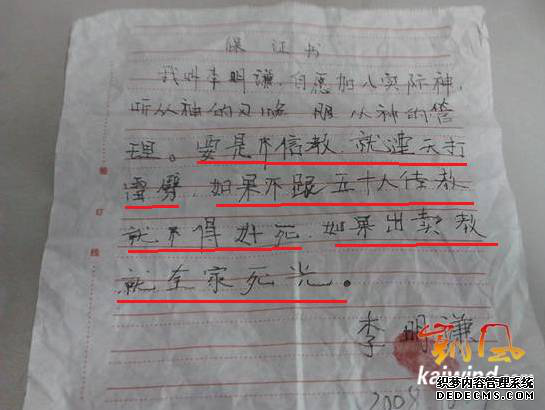 保证书
我叫李明谦,自愿加入实际神,
听从神的召唤 服从神的管
理。要是不信教 就連天打
雷劈.如果不跟五十人传教
就不得好死.如果出卖教
就全家死光。
李明谦
2008
凯风
kaiwind.com
织梦内容管理系统
DEDECMS.COM